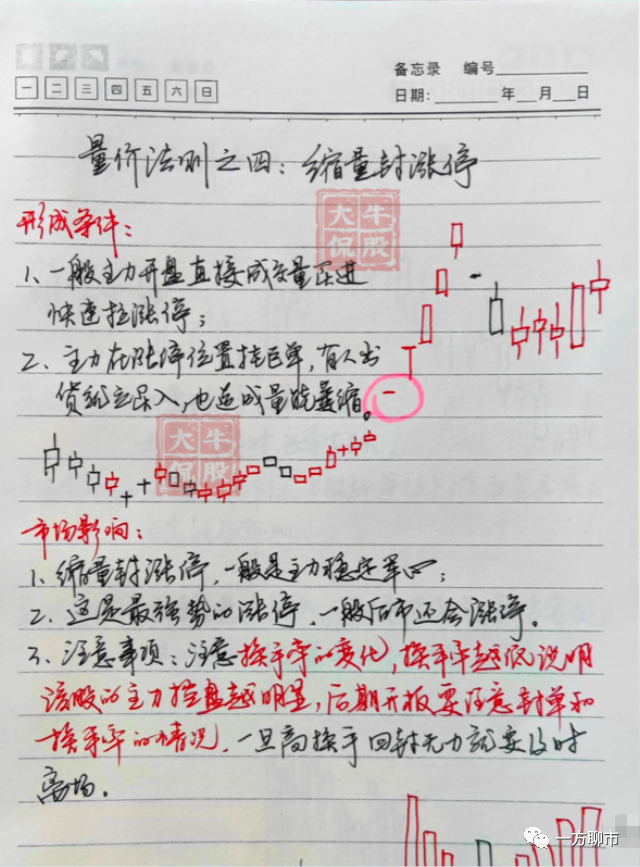 备忘录 编号
一 二 三 四 五 六 日
日期: 年 月 日
量价法则之四：缩量封涨停
大牛
侃股
形成条件：
1、一般主力开盘直接成交量买进
快速拉涨停；
2、主力在涨停位置挂巨单，有人出
货就立马买入，也造成量能萎缩。
大牛
侃股
市场影响：
1、缩量封涨停，一般是主力稳定军心；
2、这是最强势的涨停，一般后市还会涨停。
3、注意事项：注意换手率的变化，换手率越低说明
该股的主力控盘越明显，后期开板要注意封单和
换手率的情况，一旦高换手回封无力就要及时
离场。
一方聊市